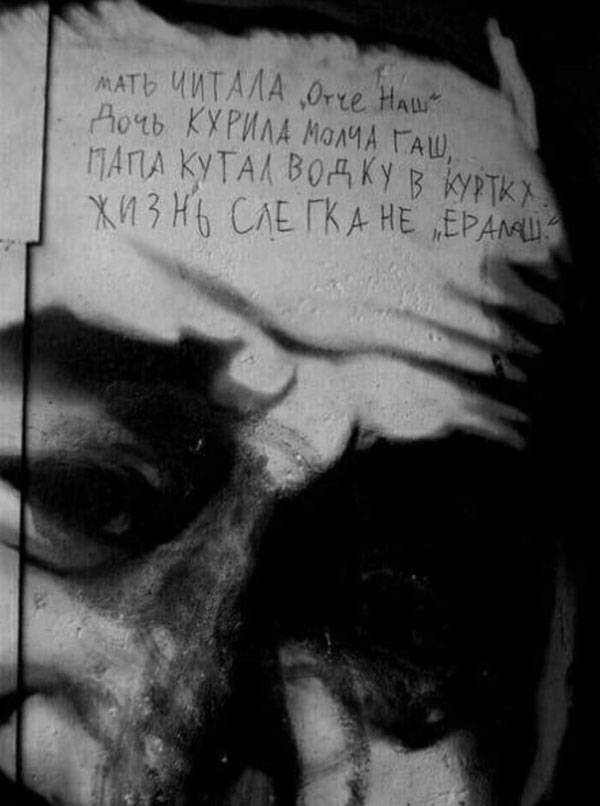 мать читала „Отче Наш“
Дочь курила молча гаш,
папа кутал водку в куртку
жизнь слегка не „Ералаш“